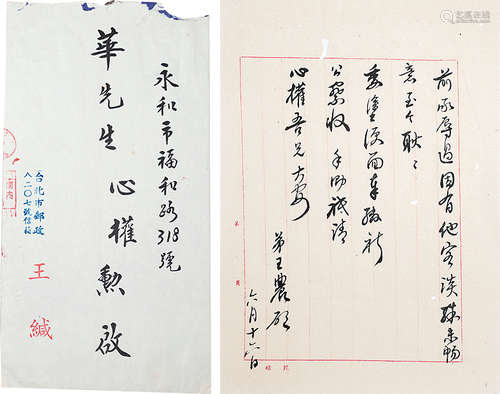 永和市福和路318號
華先生 心權 勳啟
台北市郵政
八二〇七號信箱
王緘
前承厚過因有他客談殊未暢
意至今耿耿
委塗便面奉繳祈
公察收 手此祗請
心權吾兄大安
弟王農頓
六月十六日